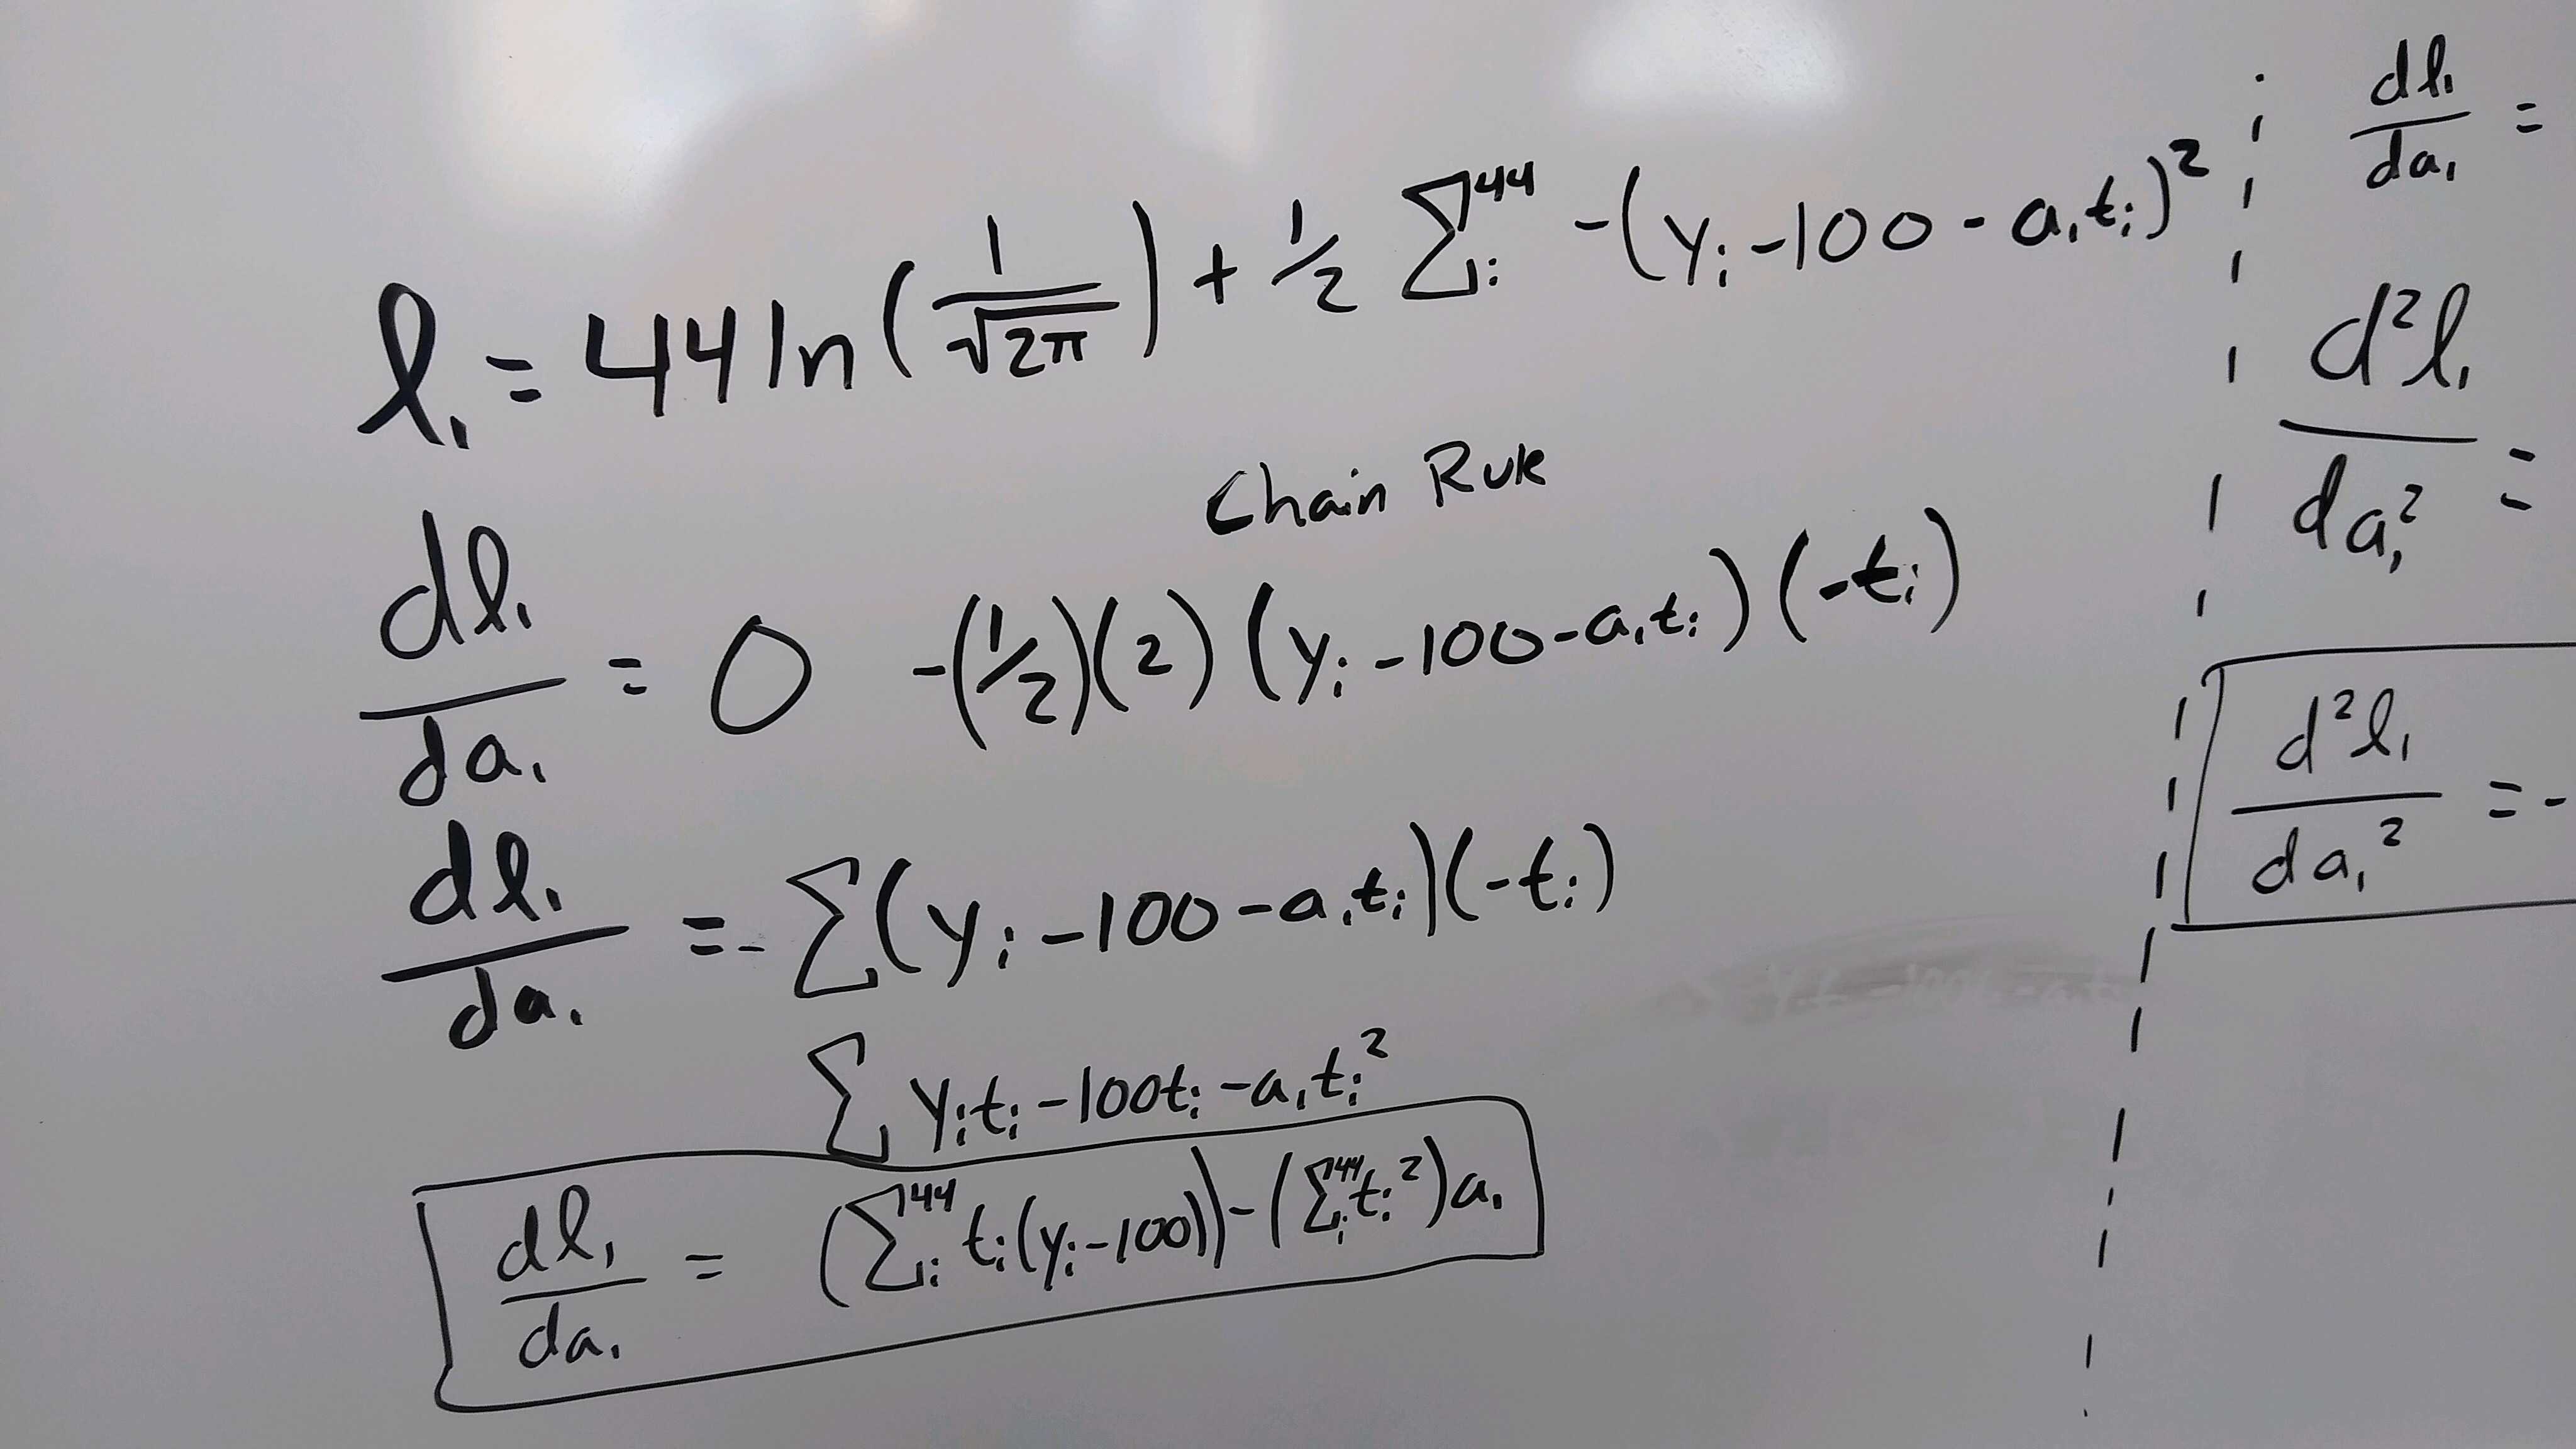 l₁ = 44 ln(1/√2π) + 1/2 Σᵢ⁴⁴ -(yᵢ - 100 - a₁tᵢ)²
Chain Rule
dl₁/da₁ = 0 -(1/2)(2)(yᵢ - 100 - a₁tᵢ)(-tᵢ)
dl₁/da₁ = - Σ(yᵢ - 100 - a₁tᵢ)(-tᵢ)
Σ yᵢtᵢ - 100tᵢ - a₁tᵢ²
dl₁/da₁ = (Σᵢ⁴⁴ tᵢ(yᵢ - 100)) - (Σᵢ⁴⁴ tᵢ²)a₁
dl₁/da₁ =
d²l₁/da₁² =
d²l₁/da₁² = -